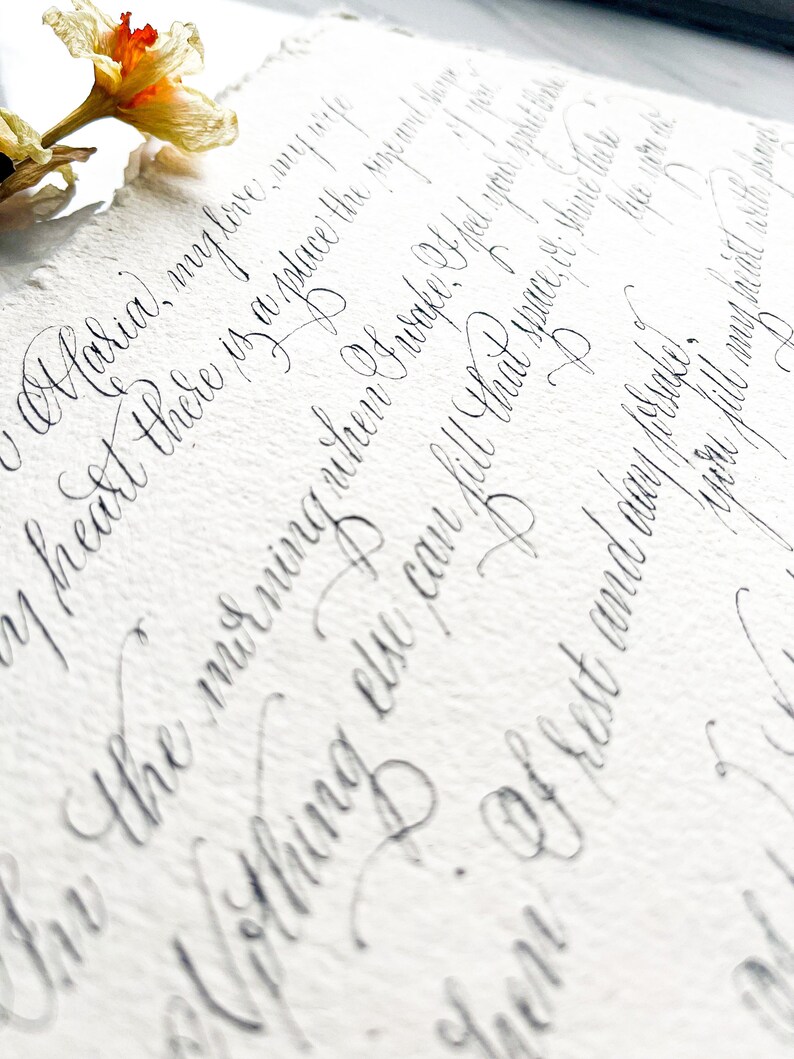 Maria, my love, my wife
heart there is a place the size and shape
of you.
In the morning when I wake, I feel your spirit there
Nothing else can fill that space, it shines there
like you do.
I rest and day
you fill my heart with